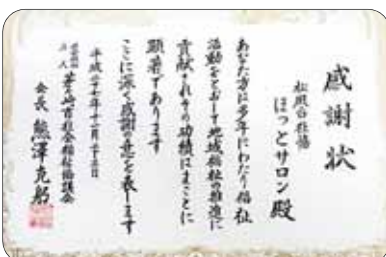 感謝状
ほっとサロン殿
あなた方は多年にわたり福祉
活動をとおして地域福祉の推進に
貢献されその功績はまことに
顕著であります
ここに深く感謝の意を表します
平成二十七年十一月二十三日
会長 熊澤克躬